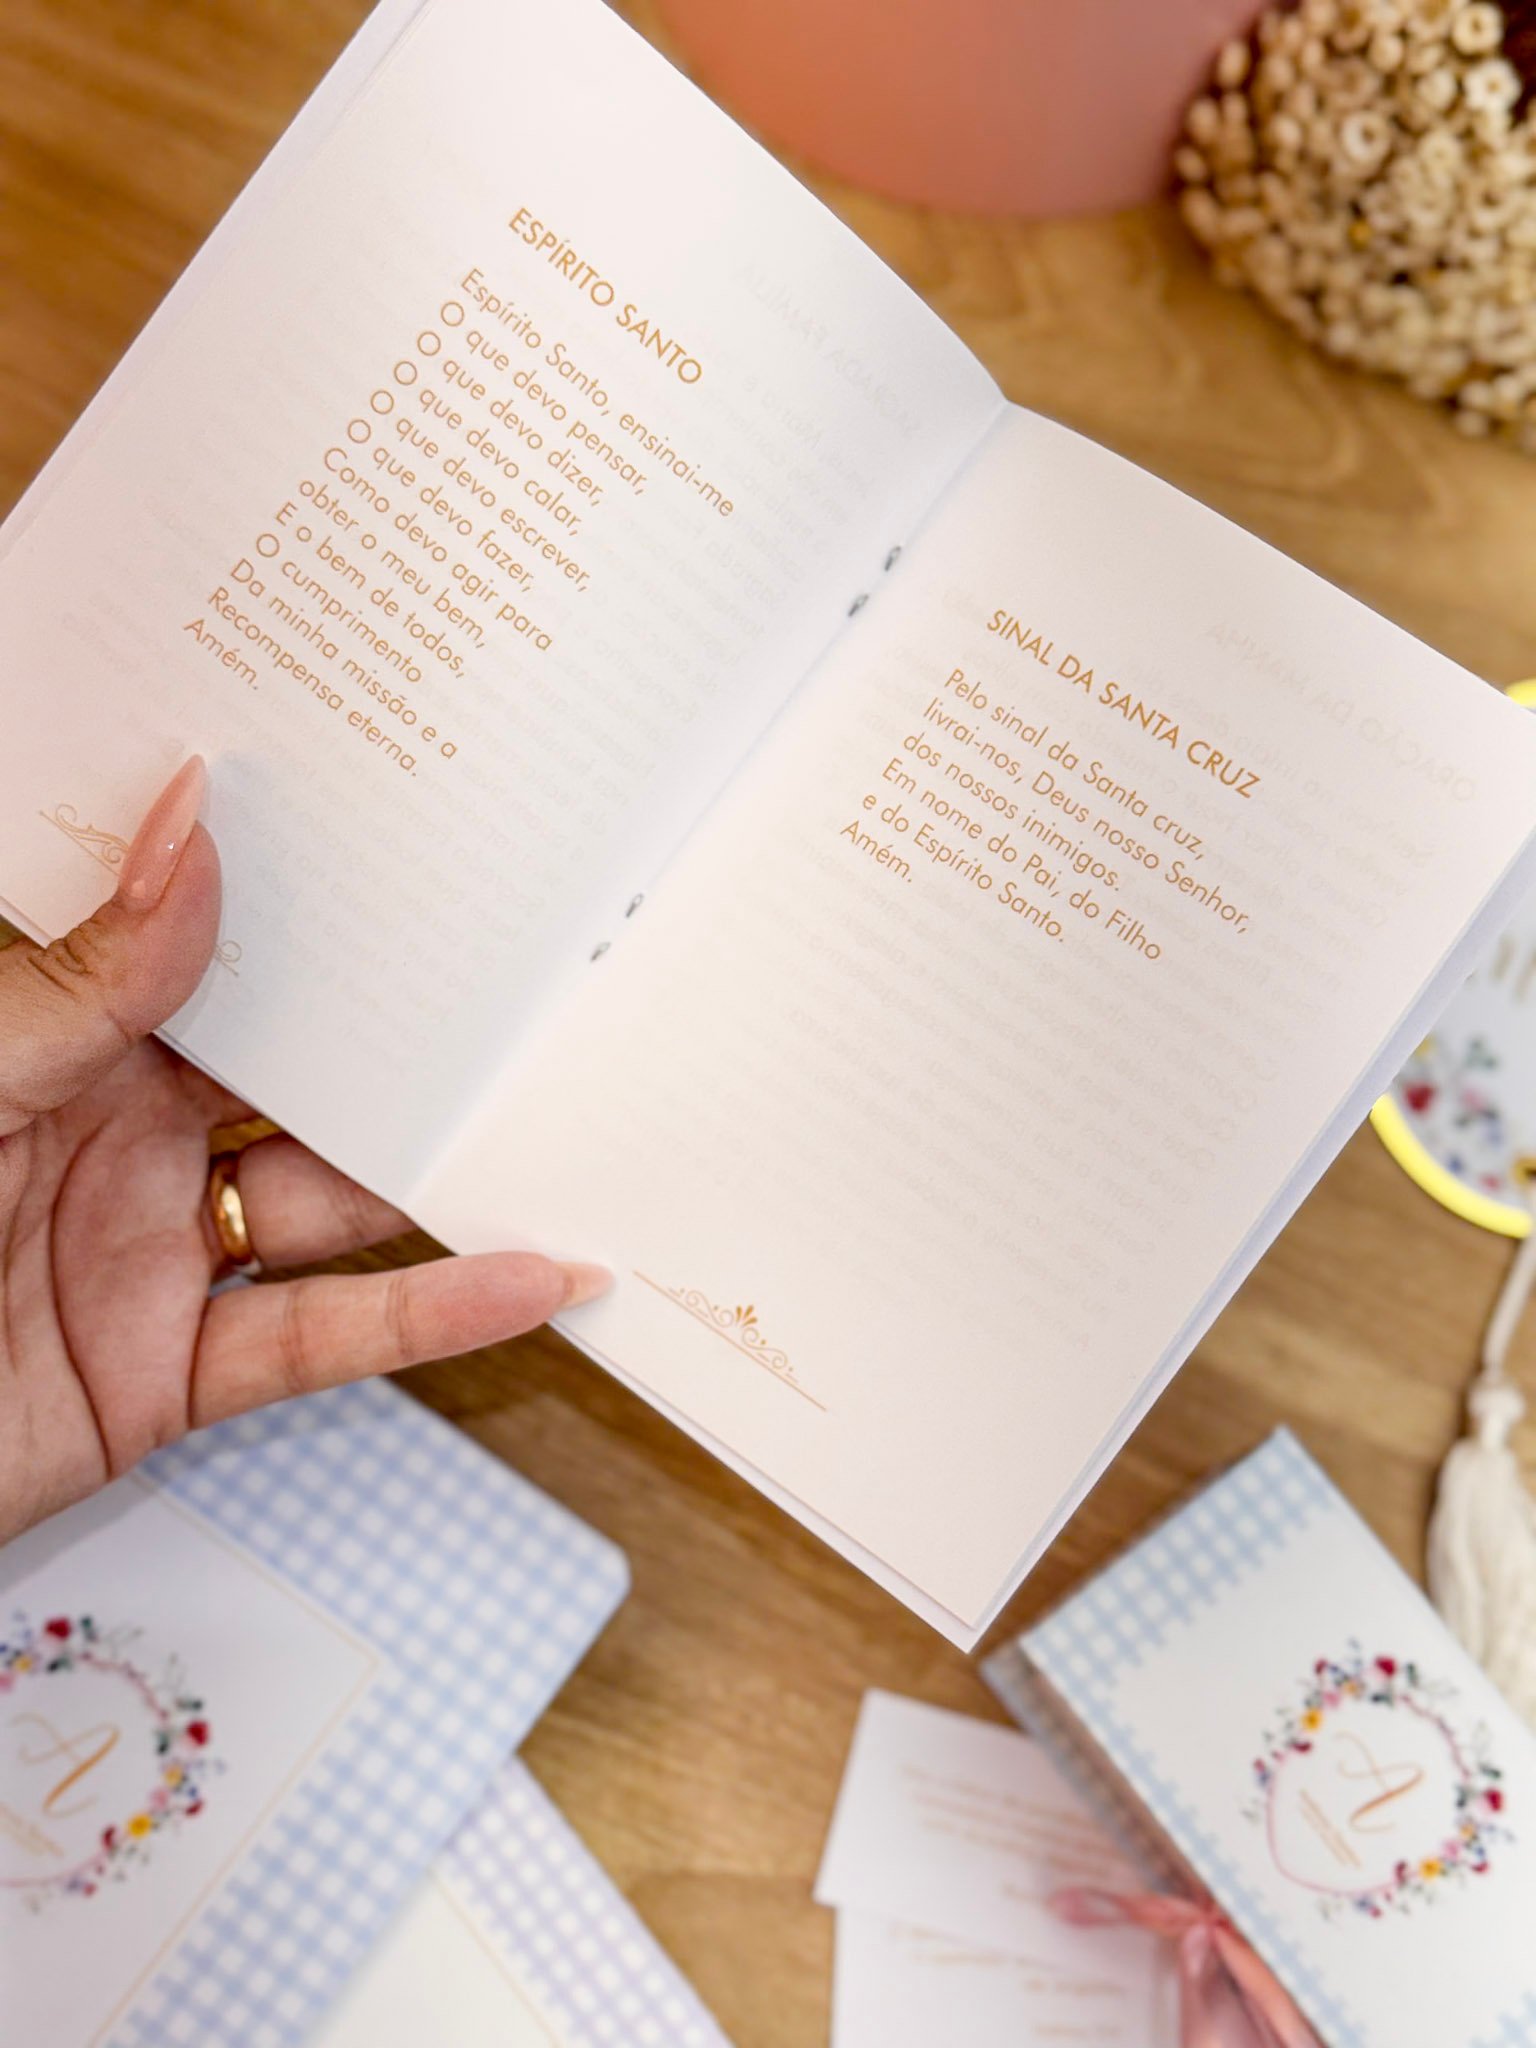 ESPÍRITO SANTO
Espírito Santo, ensinai-me
O que devo pensar,
O que devo dizer,
O que devo calar,
O que devo escrever,
O que devo fazer,
Como devo agir para
obter o meu bem,
E o bem de todos,
O cumprimento
Da minha missão e a
Recompensa eterna.
Amém.
SINAL DA SANTA CRUZ
Pelo sinal da Santa cruz,
livrai-nos, Deus nosso Senhor,
dos nossos inimigos.
Em nome do Pai, do Filho
e do Espírito Santo.
Amém.
A
A